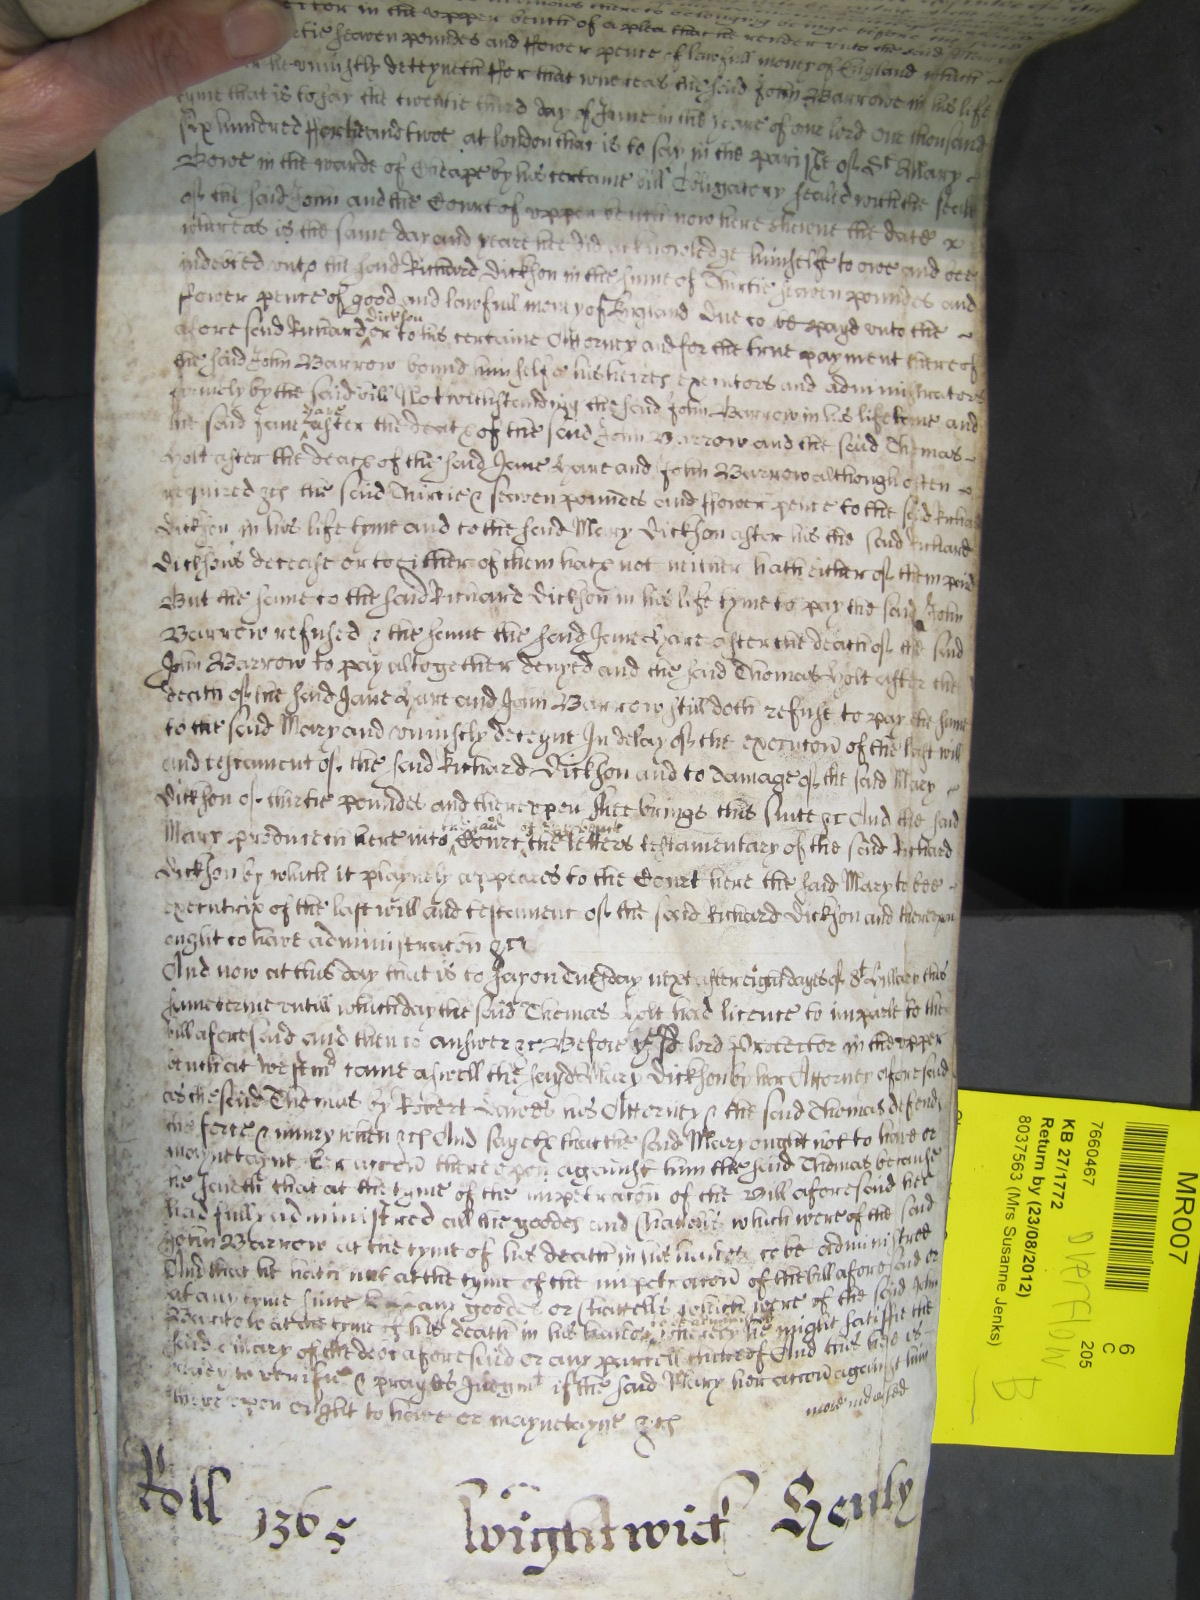 in the upper bench of a plea that he render unto the said
seaven poundes and ffower pence of lawfull mony of England which
he uniustly deteyneth ffor that whereas the said John Barrowe in his life
tyme that is to say the twentie third day of June in the yeare of our lord One thousand
six hundred ffortie and twoe at london that is to say in the parishe of St Mary
Bowe in the warde of Cheape by his certaine bill Obligatory sealed with the seale
of the said John and the Court of upper bench now here shewen the date
whereas is the same day and yeare hee did acknowledge himselfe to owe and bee
indebted unto the said Richard Dickson in the summe of Thirtie seaven poundes and
ffower pence of good and lawfull mony of England due to be payd unto the
aforesaid Richard Dickson or to his certaine Attorney and for the true payment thereof
the said John Barrow bound himselfe his heires executors and administrators
firmely by the said bill Notwithstanding the said John Barrow in his life tyme and
the said Jane Hare after the death of the said John Barrow and the said Thomas
Holt after the death of the said Jane Hare and John Barrow although often
required &ch the said Thirtie & seaven poundes and ffower pence to the said Richard
Dickson in his life tyme and to the said Mary Dickson after his the said Richard
Dicksons decease or to either of them hath not neither hath either of them paid
But the same to the said Richard Dickson in his life tyme to pay the said John
Barrow refused & the same the said Jane Hare after the death of the said
John Barrow to pay altogether denyed and the said Thomas Holt after the
death of the said Jane Hare and John Barrow still doth refuse to pay the same
to the said Mary and uniustly deteyne In delay of the execucon of the last will
and testament of the said Richard Dickson and to damage of the said Mary
Dickson of thirtie poundes and thereupon shee brings this suite &c And the said
Mary produceth here into the said Court the letters testamentary of the said Richard
Dickson by which it playnely appeares to the Court here the said Mary to bee
executrix of the last will and testament of the said Richard Dickson and thereupon
ought to have administracon &c
And now at this day that is to say on Tuesday next after eight dayes of St Hillary this
same terme untill which day the said Thomas Holt had licence to imparle to the
bill aforesaid and then to answer &c Before ye sd lord Protector in the upper
bench at Westmr came aswell the said Mary Dickson by her Attorney aforesaid
as the said Thomas by Robert his Attorney & the said Thomas defends
the force & iniury when &ch And sayeth that the said Mary ought not to have or
mayneteyne her accon thereupon against him the said Thomas because
he saieth that at the tyme of the impetracon of the Bill aforesaid hee
had fully administred all the goodes and Chattells which were of the said
John Barrow at the tyme of his death in his handes to be administred
And that he hath not at the tyme of the impetracon of the bill aforesaid or
at any tyme since any goodes or Chattells which were of the said John
Barrow at the tyme of his death in his handes to be administred whereby he might satisfie the
said Mary of the debt aforesaid or any parcell thereof And this hee is
ready to verifie & prayes Iudgmt if the said Mary her accon against him
thereupon ought to have or mayneteyne &ch
more indorsed
Roll 1365 Wightwick Henly
MR007
6
C
205
7660467
KB 27/1772
Return by (23/08/2012)
8037563 (Mrs Susanne Jenks)
OVERFLOW
B